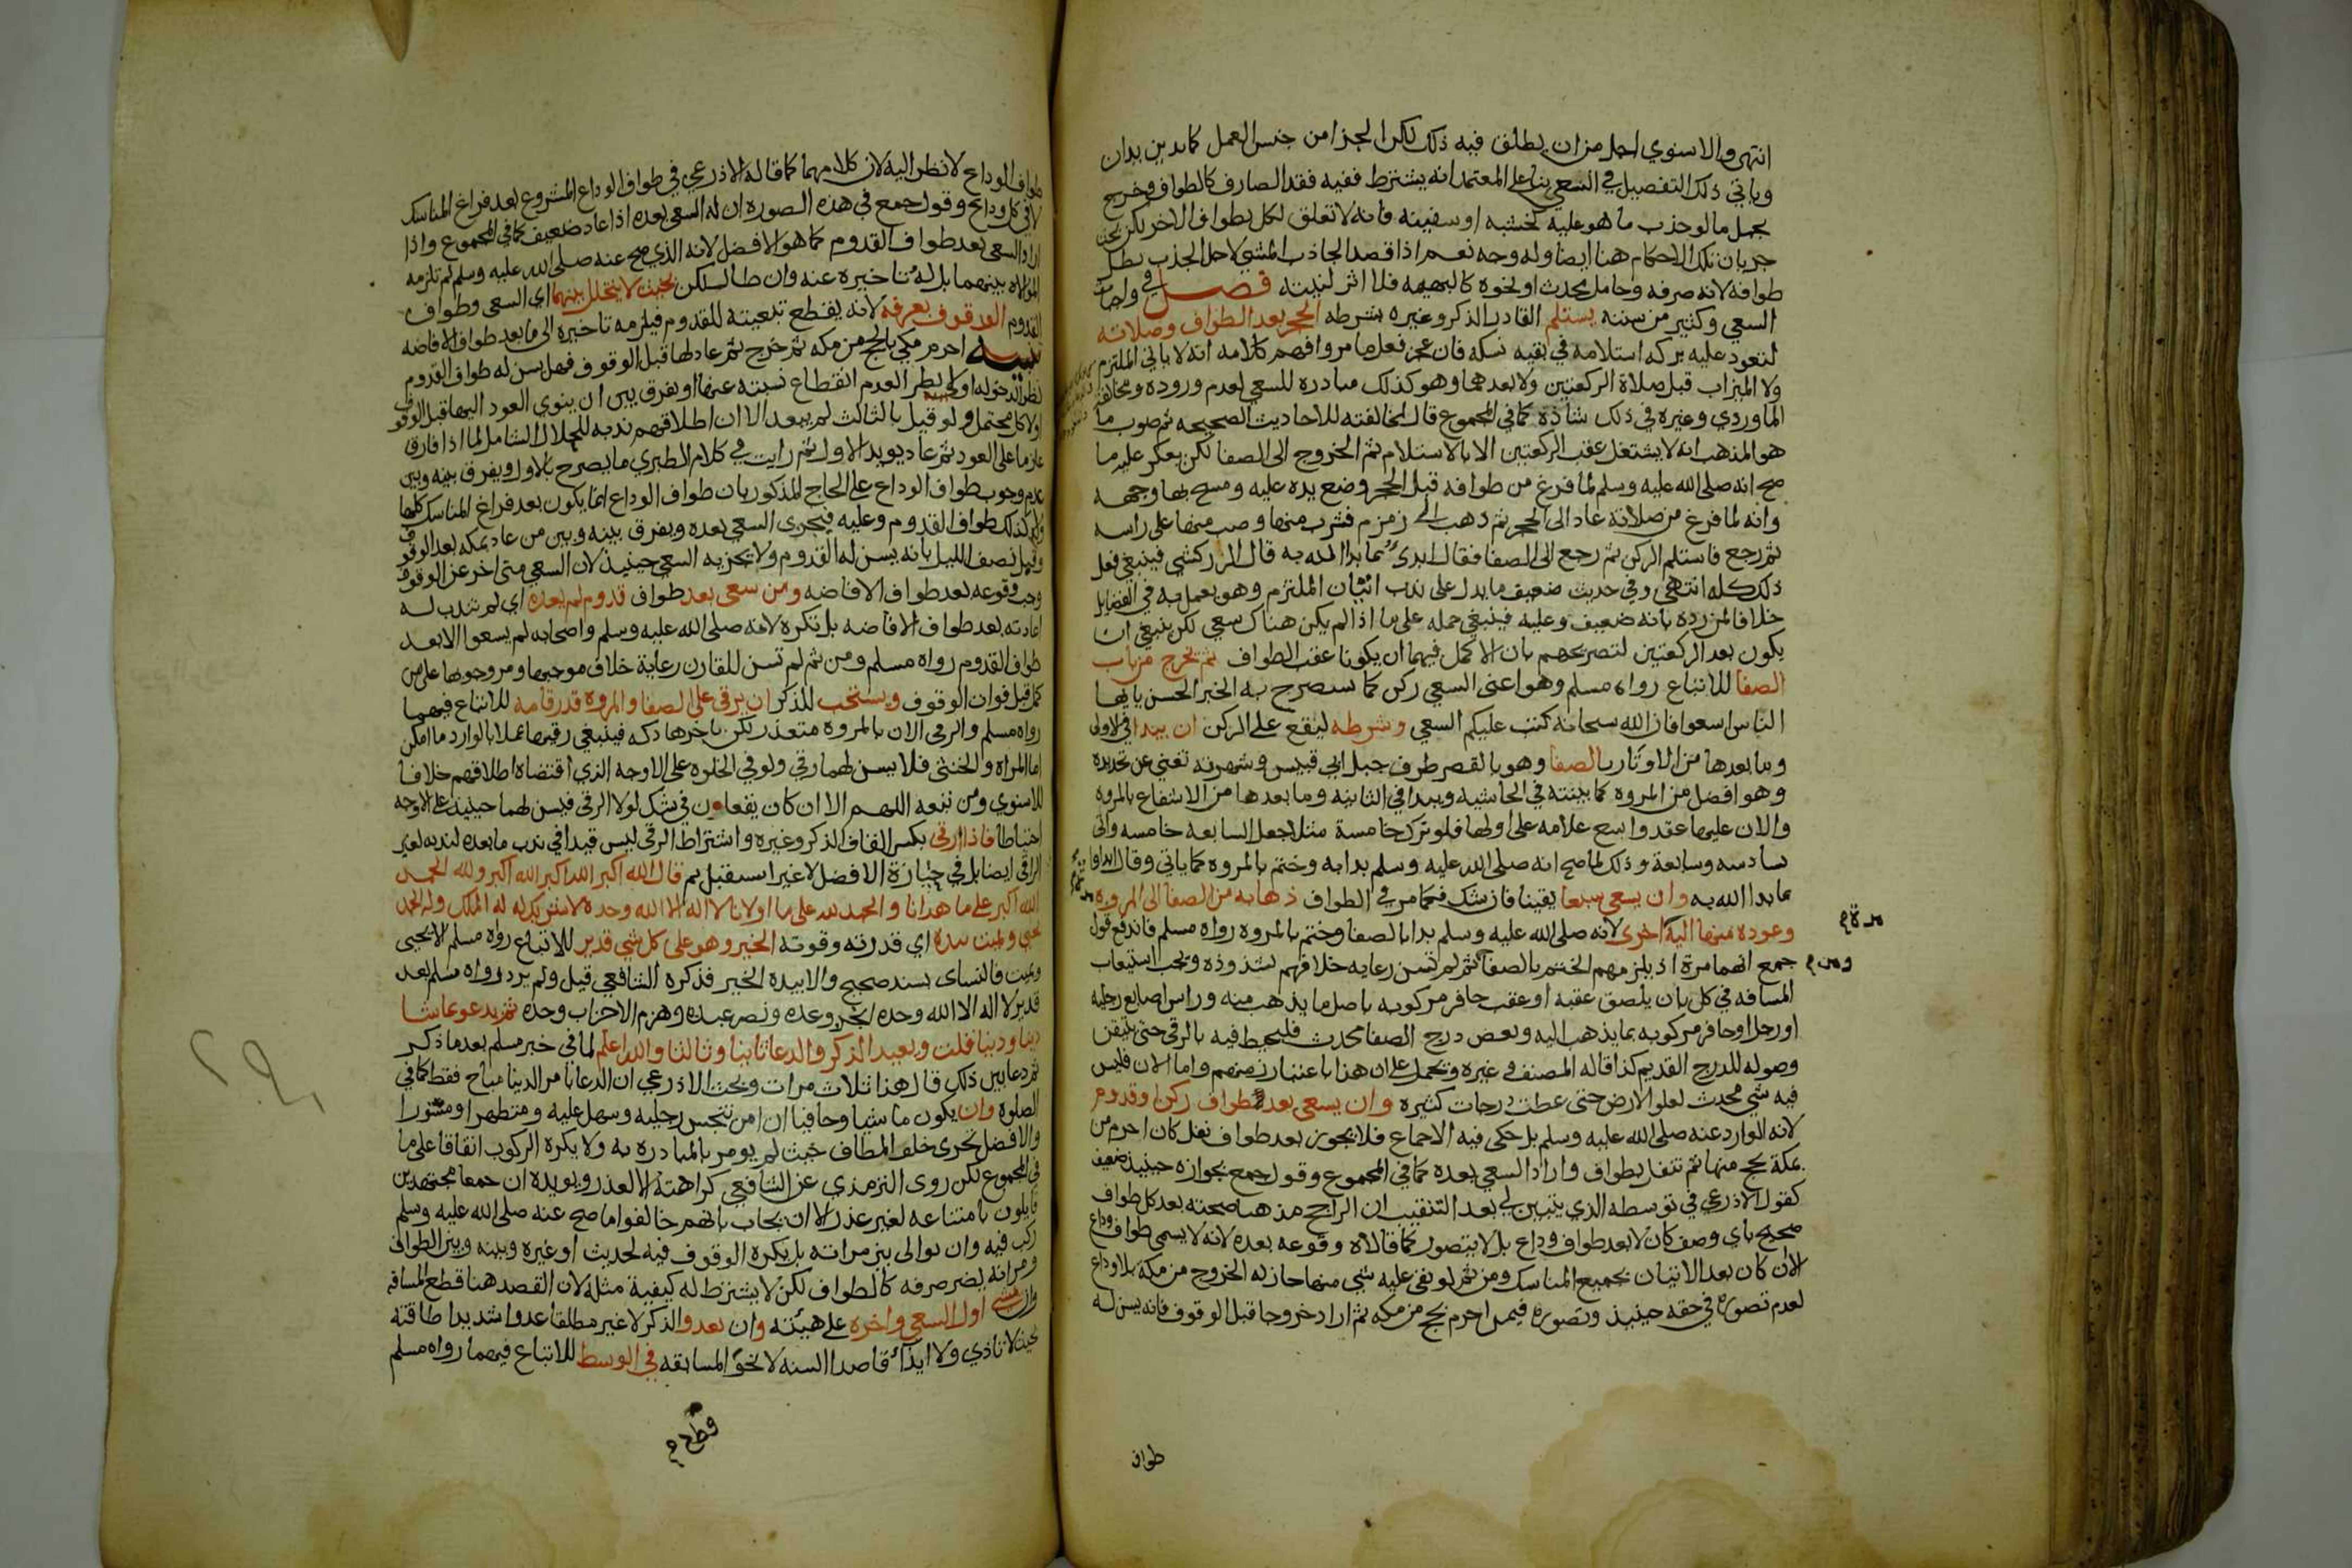 انتهى والاسنوي اجل من ان يطلق فيه ذلك لكن الجزا من جنس العمل كما تدين تدان
وياتي ذلك التفصيل في السعي بنا على المعتمد انه يشترط ففيه فقد الصارف كالطواف وخرج
بحمل ما لو جذب ما هو عليه كخشبه او سفينه فانه لا تعلق لكل بطواف الاخر لكن بحث
جريان تلك الاحكام هنا ايضا وله وجه نعم اذا قصد الجاذب المشي لاجل الجذب بطل
طوافه لانه صرفه وحامل محدث او نحوه كالبهيمه فلا اثر لنيته فصل في واجبات
السعي وكثير من سننه يستلم القادر الذكر وغيره بشرطه الحجر بعد الطواف وصلاته
لتعود عليه بركه استلامه في بقيه نسكه فان عجز فعل ما مر وافهم كلامه انه لا ياتي الملتزم
ولا الميزاب قبل صلاة الركعتين ولا بعدهما وهو كذلك مبادره للسعي لعدم وروده ومخالفة
الماوردي وغيره في ذلك شاذة كما في المجموع قال لمخالفته للاحاديث الصحيحه ثم صوب ما
هو المذهب انه لا يشتغل عقب الركعتين الا بالاستلام ثم الخروج الى الصفا لكن يعكر عليه ما
صح انه صلى الله عليه وسلم لما فرغ من طوافه قبل الحجر وضع يده عليه ومسح بها وجهه
وانه لما فرغ من صلاته عاد الى الحجر ثم ذهب الى زمزم فشرب منها وصب منها على راسه
ثم رجع فاستلم الركن ثم رجع الى الصفا فقال ابدئ بما بدا الله به قال الزركشي فينبغي فعل
ذلك كله انتهى وفي حديث ضعيف ما يدل على ندب اتيان الملتزم وهو يعمل به في الفضايل
خلافا لمن رده بانه ضعيف وعليه فينبغي حمله على ما اذا لم يكن هناك سعي لكن ينبغي ان
يكون بعد الركعتين لتصريحهم بان الاكمل فيهما ان يكونا عقب الطواف ثم يخرج من باب
الصفا للاتباع رواه مسلم وهو اعني السعي ركن كما سيصرح به الخبر الحسن يا ايها
الناس اسعوا فان الله سبحانه كتب عليكم السعي وشرطه ليقع على الركن ان يبدا في الاولى
وما بعدها من الاوتار بالصفا وهو بالقصر طرف جبل ابي قبيس وشهرته تغني عن تحديده
وهو افضل من المروه كما بينته في الحاشيه ويبدا في الثانيه وما بعدها من الاشفاع بالمروه
والان عليها عقد واسع علامه على اولها فلو ترك خامسة مثلا جعل السابعه خامسه واتى
سادسه وسابعة وذلك لما صح انه صلى الله عليه وسلم بدا به وختم بالمروه كما ياتي وقال ابداوا
بما بدا الله به وان يسعى سبعا يقينا فان شك فكما مر في الطواف ذهابه من الصفا الى المروه مرة
وعوده منها اليه اخرى لانه صلى الله عليه وسلم بدا بالصفا وختم بالمروه رواه مسلم فاندفع قول
جمع انهما مرة اذ يلزمهم الختم بالصفا ومن ثم لم تسن رعايه خلافهم لشذوذه ويجب استيعاب
المسافه في كل بان يلصق عقبه او عقب حافر مركوبه باصل ما يذهب منه وراس اصابع رجليه
او رجل او حافر مركوبه بما يذهب اليه وبعض درج الصفا محدث فليحتط فيه بالرقي حتى يتيقن
وصوله للدرج القديم كذا قاله المصنف وغيره ويحمل على ان هذا باعتبار زمنهم واما الان فليس
فيه شي محدث لعلو الارض حتى غطت درجات كثيره وان يسعى بعد طواف ركن او قدوم
لانه الوارد عنه صلى الله عليه وسلم بل حكى فيه الاجماع فلا يجوز بعد طواف نفل كان احرم من
بمكة بحج منها ثم تنفل بطواف واراد السعي بعده كما في المجموع وقول جمع بجوازه حينيذ ضعيف
كقول الاذرعي في توسطه الذي يتبين لي بعد التنقيب ان الراجح مذهبا صحته بعد كل طواف
صحيح باي وصف كان لا بعد طواف وداع بل لا يتصور كما قالاه وقوعه بعده لانه لا يسمى طواف وداع
الا ان كان بعد الاتيان بجميع المناسك ومن ثم لو بقي عليه شي منها جاز له الخروج من مكة بلا وداع
لعدم تصوره في حقه حينيذ وتصوره فيمن احرم بحج من مكه ثم اراد خروجا قبل الوقوف فانه يسن له
طواف
طواف الوداع لا نظر اليه لان كلامهما كما قاله الاذرعي في طواف الوداع المشروع بعد فراغ المناسك
لا في كل وداع وقول جمع في هذه الصوره ان له السعي بعده اذا عاد ضعيف كما في المجموع واذا
اراد السعي بعد طواف القدوم كما هو الافضل لانه الذي صح عنه صلى الله عليه وسلم لم تلزمه
الموالاه بينهما بل له تاخيره عنه وان طال لكن بحيث لا يتخلل بينهما اي السعي وطواف
القدوم الوقوف بعرفه لانه يقطع تبعيته للقدوم فيلزمه تاخيره الى ما بعد طواف الافاضه
تنبيه احرم مكي بالحج من مكه ثم خرج ثم عاد لها قبل الوقوف فهل يسن له طواف القدوم
نظرا لدخوله او لا نظرا لعدم انقطاع نسبته عنها او يفرق بين ان ينوي العود اليها قبل الوقوف
اولا كل محتمل ولو قيل بالثالث لم يبعد الا ان اطلاقهم ندبه للحلال الشامل لما اذا فارق
عازما على العود ثم عاد يويد الاول ثم رايت في كلام الطبري ما يصرح بالاول ويفرق بينه وبين
عدم وجوب طواف الوداع على الحاج المذكور بان طواف الوداع انما يكون بعد فراغ المناسك كلها
ولا كذلك طواف القدوم وعليه فيجزى السعي بعده ويفرق بينه وبين من عاد بمكه بعد الوقوف
وقبل نصف الليل بانه يسن له القدوم ولا يجزيه السعي حينيذ لان السعي متى اخر عن الوقوف
وجب وقوعه بعد طواف الافاضه ومن سعى بعد طواف قدوم لم يعده اي لم تندب له
اعادته بعد طواف الافاضه بل تكره لانه صلى الله عليه وسلم واصحابه لم يسعوا الا بعد
طواف القدوم رواه مسلم ومن ثم لم تسن للقارن رعاية خلاف موجبها ومر وجوبها على من
كمل قبل فوات الوقوف ويستحب للذكر ان يرقى على الصفا والمروه قدر قامه للاتباع فيهما
رواه مسلم والرقي الان بالمروه متعذر لكن باخرها دكه فينبغي رقيها عملا بالوارد ما امكن
اما المراة والخنثى فلا يسن لهما رقي ولو في الخلوه على الاوجه الذي اقتضاه اطلاقهم خلافا
للاسنوي ومن تبعه اللهم الا ان كان يقعان في شك لولا الرقي فيسن لهما حينيذ على الاوجه
احتياطا فاذا رقى بكسر القاف الذكر وغيره واشتراط الرقي ليس قيدا في ندب ما بعده لندبه لغير
الراقي ايضا بل في حيازة الافضل لا غير استقبل ثم قال الله اكبر الله اكبر الله اكبر ولله الحمد
الله اكبر على ما هدانا والحمد لله على ما اولانا لا اله الا الله وحده لا شريك له له الملك وله الحمد
يحيي ويميت بيده اي قدرته وقوته الخير وهو على كل شي قدير للاتباع رواه مسلم الا يحيي
ويميت فالنساى بسند صحيح والا بيده الخير فذكره الشافعي قيل ولم يرد رواه مسلم بعد
قدير لا اله الا الله وحده انجز وعده ونصر عبده وهزم الاحزاب وحده ثم يدعو بما شا
دينا ودنيا قلت ويعيد الذكر والدعا ثانيا وثالثا والله اعلم لما في خبر مسلم بعد ما ذكر
ثم دعا بين ذلك قال هذا ثلاث مرات وبحث الاذرعي ان الدعا بامر الدنيا مباح فقط كما في
الصلوة وان يكون ماشيا وحافيا ان امن تنجس رجليه وسهل عليه ومتطهرا ومستورا
والافضل تحرى خلف المطاف حيث لم يومر بالمبادره به ولا يكره الركوب اتفاقا على ما
في المجموع لكن روى الترمذي عن الشافعي كراهته الا لعذر ويويده ان جمعا مجتهدين
قايلون بامتناعه لغير عذر الا ان يجاب بانهم خالفوا ما صح عنه صلى الله عليه وسلم
ركب فيه وان يوالى بين مراته بل يكره الوقوف فيه لحديث او غيره وبينه وبين الطواف
ومر انه يضر صرفه كالطواف لكن لا يشترط له كيفية مثله لان القصد هنا قطع المسافه
وان يمشي اول السعي واخره على هيئته وان يعدو الذكر لا غير مطلقا عدوا شديدا طاقته
بحيث لا تاذي ولا ايذا قاصدا السنه لا نحو المسابقه في الوسط للاتباع فيهما رواه مسلم